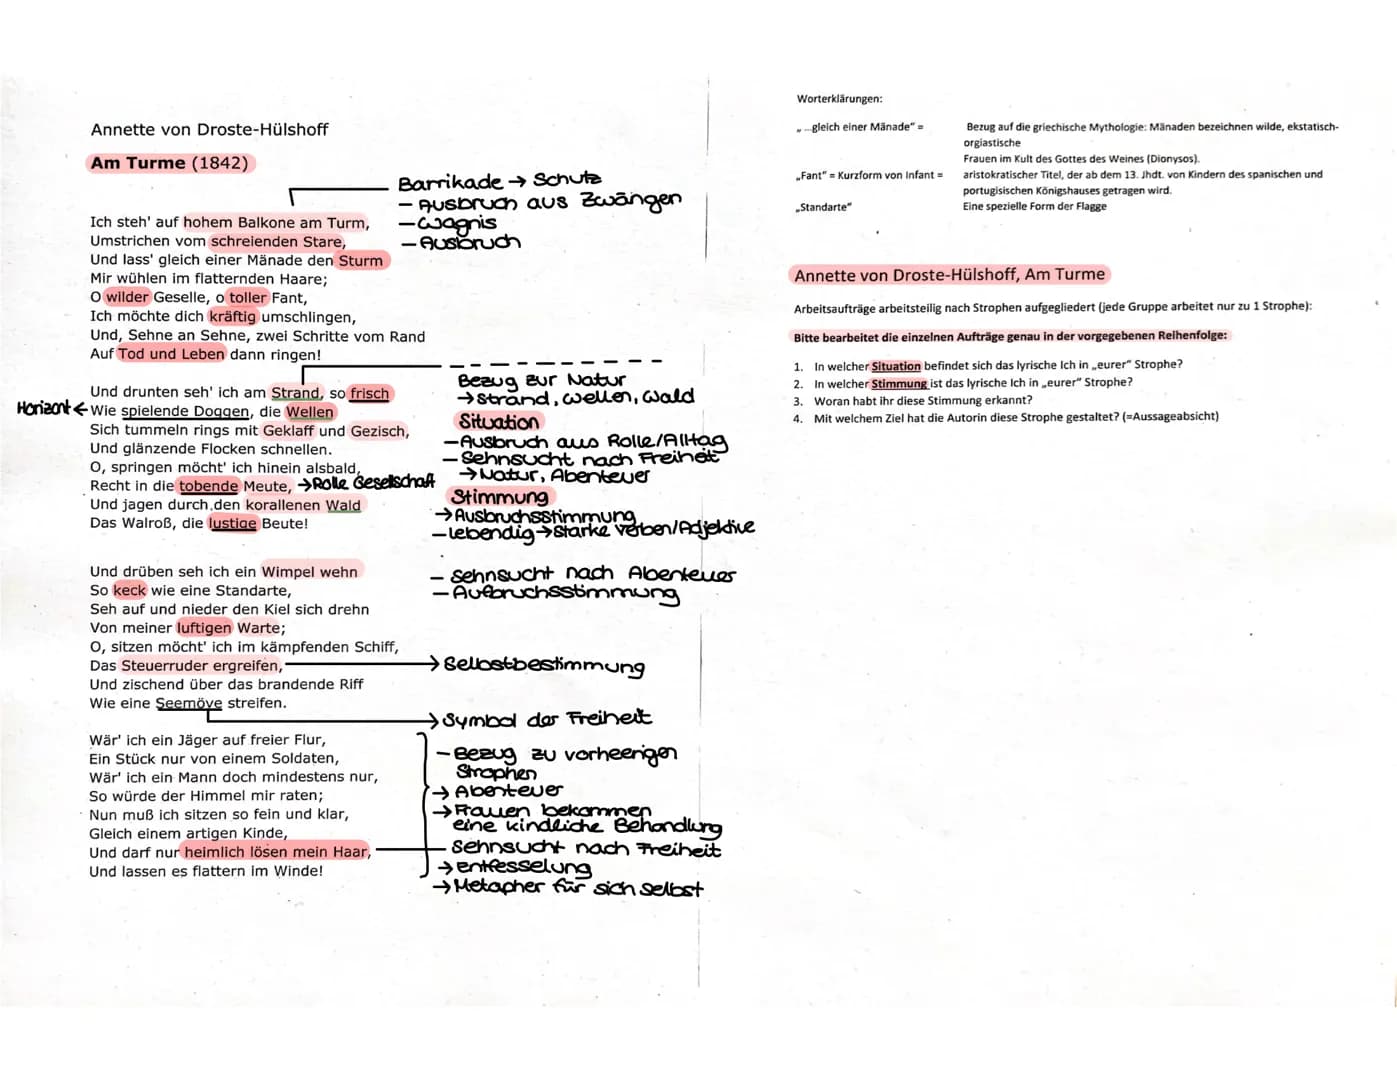 Annette von Droste-Hülshoff
Am Turme (1842)
Barrikade → Schutz
- Ausbruch aus Zwängen
- Wagnis
- Ausbruch
Ich steh' auf hohem Balkone am Turm,
Umstrichen vom schreienden Stare,
Und lass' gleich einer Mänade den Sturm
Mir wühlen im flatternden Haare;
O wilder Geselle, o toller Fant,
Ich möchte dich kräftig umschlingen,
Und, Sehne an Sehne, zwei Schritte vom Rand
Auf Tod und Leben dann ringen!
Und drunten seh' ich am Strand, so frisch
Horizont ← Wie spielende Doggen, die Wellen
Sich tummeln rings mit Geklaff und Gezisch,
Und glänzende Flocken schnellen.
O, springen möcht' ich hinein alsbald,
Recht in die tobende Meute, → Rolle Gesellschaft
Und jagen durch den korallenen Wald
Das Walroß, die lustige Beute!
Bezug zur Natur
→ Strand, Wellen, Wald
Situation
- Ausbruch aus Rolle/Alltag
- Sehnsucht nach Freiheit
→ Natur, Abenteuer
Stimmung
→ Ausbruchsstimmung
- lebendig → starke Verben/Adjektive
Und drüben seh ich ein Wimpel wehn
So keck wie eine Standarte,
Seh auf und nieder den Kiel sich drehn
Von meiner luftigen Warte;
O, sitzen möcht' ich im kämpfenden Schiff,
Das Steuerruder ergreifen, → Selbstbestimmung
Und zischend über das brandende Riff
Wie eine Seemöve streifen.
- Sehnsucht nach Abenteuer
- Aufbruchsstimmung
→ Symbol der Freiheit
Wär' ich ein Jäger auf freier Flur,
Ein Stück nur von einem Soldaten,
Wär' ich ein Mann doch mindestens nur,
So würde der Himmel mir raten;
Nun muß ich sitzen so fein und klar,
Gleich einem artigen Kinde,
Und darf nur heimlich lösen mein Haar,
Und lassen es flattern im Winde!
- Bezug zu vorheerigen
Strophen
→ Abenteuer
→ Frauen bekommen
eine kindliche Behandlung
Sehnsucht nach Freiheit
→ entfesselung
→ Metapher für sich selbst
Worterklärungen:
„ ...gleich einer Mänade" = Bezug auf die griechische Mythologie: Mänaden bezeichnen wilde, ekstatisch-
orgiastische
Frauen im Kult des Gottes des Weines (Dionysos).
„Fant" = Kurzform von Infant = aristokratischer Titel, der ab dem 13. Jhdt. von Kindern des spanischen und
portugisischen Königshauses getragen wird.
„Standarte" Eine spezielle Form der Flagge
Annette von Droste-Hülshoff, Am Turme
Arbeitsaufträge arbeitsteilig nach Strophen aufgegliedert (jede Gruppe arbeitet nur zu 1 Strophe):
Bitte bearbeitet die einzelnen Aufträge genau in der vorgegebenen Reihenfolge:
1. In welcher Situation befindet sich das lyrische Ich in „eurer" Strophe?
2. In welcher Stimmung ist das lyrische Ich in „eurer" Strophe?
3. Woran habt ihr diese Stimmung erkannt?
4. Mit welchem Ziel hat die Autorin diese Strophe gestaltet? (=Aussageabsicht)